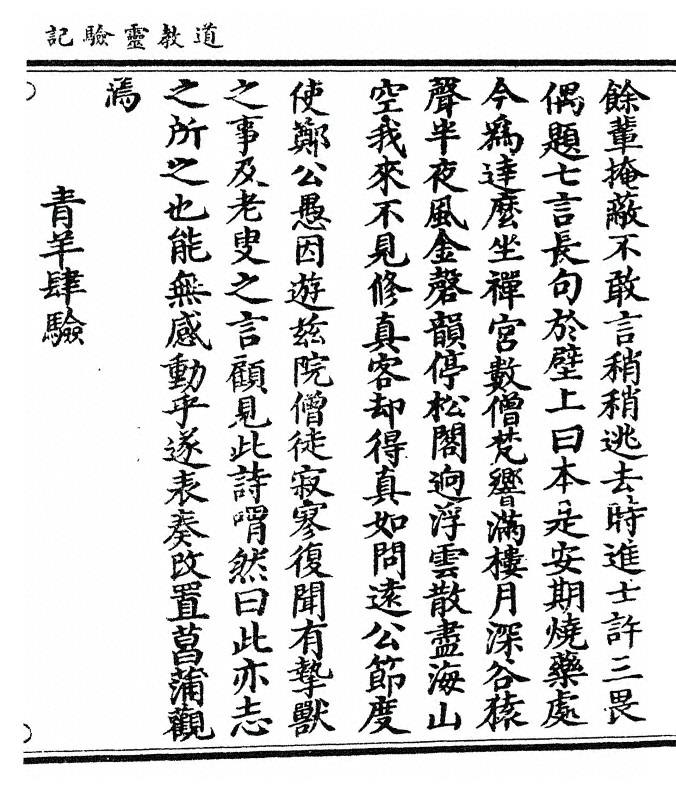 記驗靈敎道
餘輩掩蔽不敢言稍稍逃去時進士許三畏
偶題七言長句於壁上曰本是安期燒藥處
今爲達麼坐禪宮數僧梵響滿樓月深谷猿
聲半夜風金磬韻停松閣迥浮雲散盡海山
空我來不見修真客却得真如問遠公節度
使鄭公愚因遊兹院僧徒寂寥復聞有摯獸
之事及老叟之言顧見此詩喟然曰此亦志
之所之也能無感動乎遂表奏改置菖蒲觀
焉
青羊肆驗